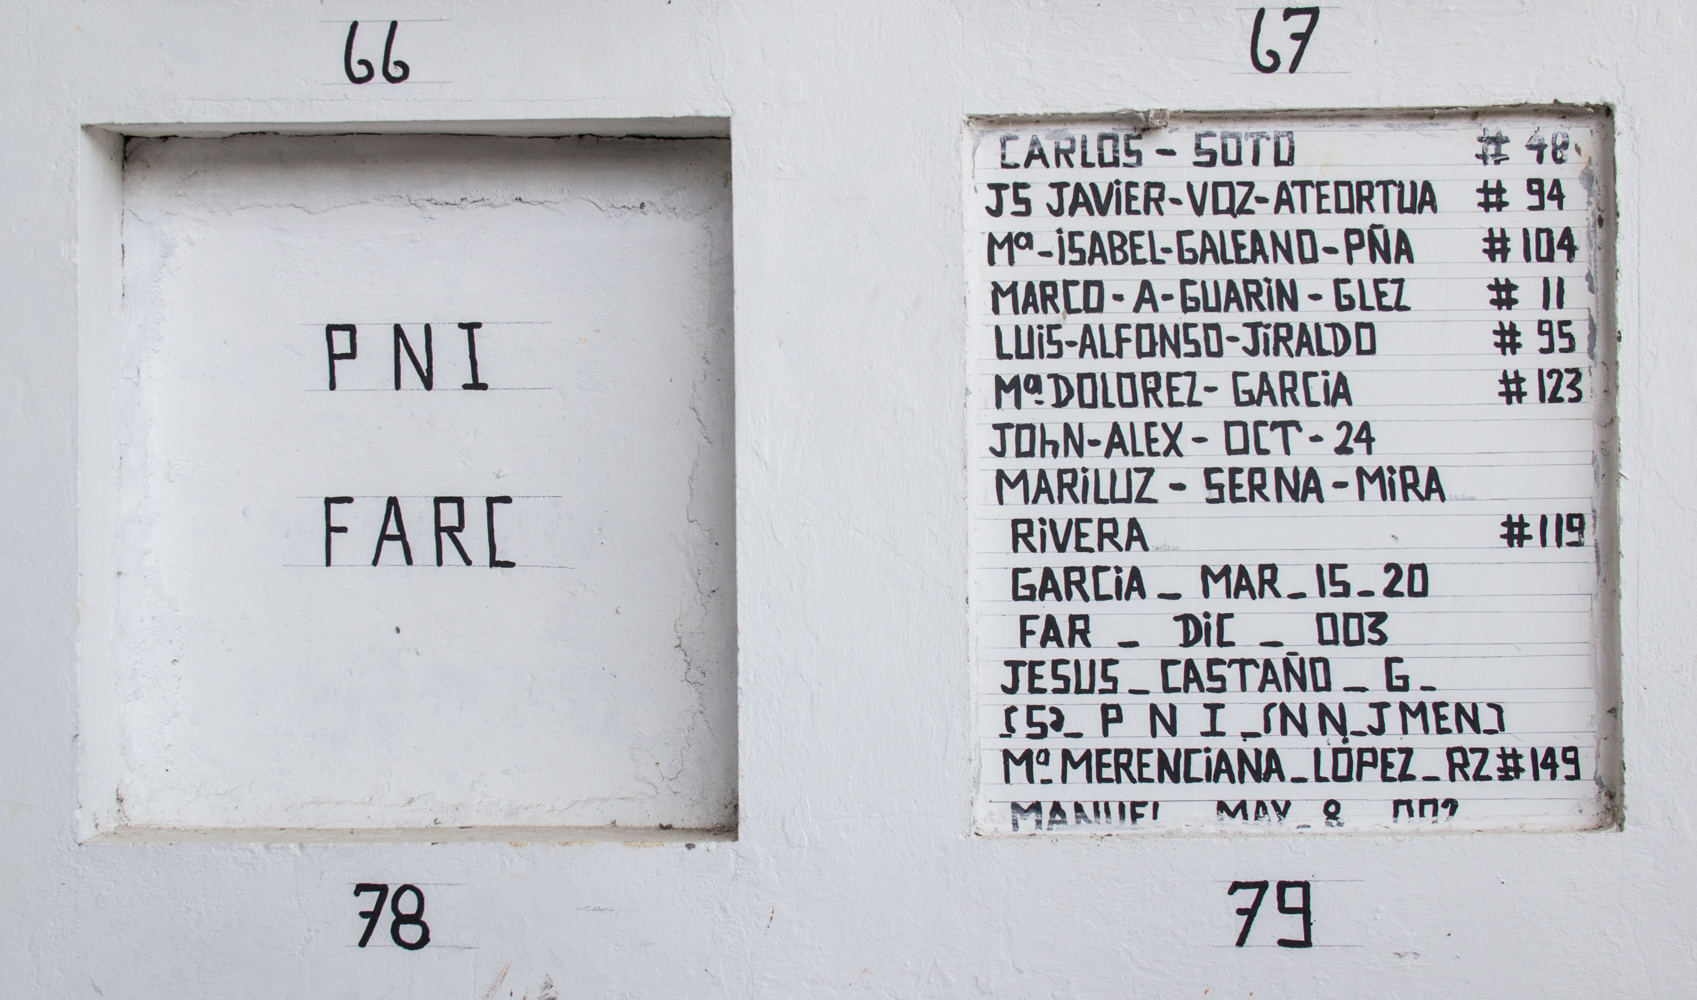 66
67
PNI
FARC
CARLOS - SOTO # 48
JS JAViER-VQZ-ATEORTUA # 94
Mª-iSABEL-GALEANO-PÑA # 104
MARCO-A-GUARiN-GLEZ # 11
LUiS-ALFONSO-JiRALDO # 95
Mª DOLOREZ- GARCiA # 123
JOhN-ALEX- OCT-24
MARiLUZ - SERNA-MiRA
RiVERA #119
GARCiA _ MAR_15_20
FAR _ DiC _ 003
JESUS_CASTAÑO_G_
(5)_ P N I _(N N_J MEN)
Mª MERENCiANA_LÓPEZ_RZ #149
MANUEL MAY_8 002
78
79